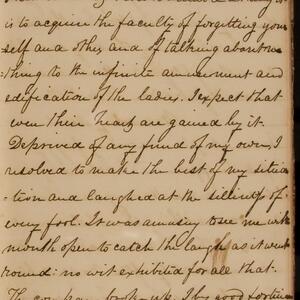 is to acquire the faculty of forgetting your
self and others and of talking about no
thing to the infinite amusement and
edification of the ladies. I expect that
even their hearts are gained by it.
Deprived of any fund of my own, I
resolved to make the best of my situa
-tion and laughed at the silliness of
every fool. It was amusing to see me with
mouth open to catch the laugh as it went
round: no wit exhibited for all that.